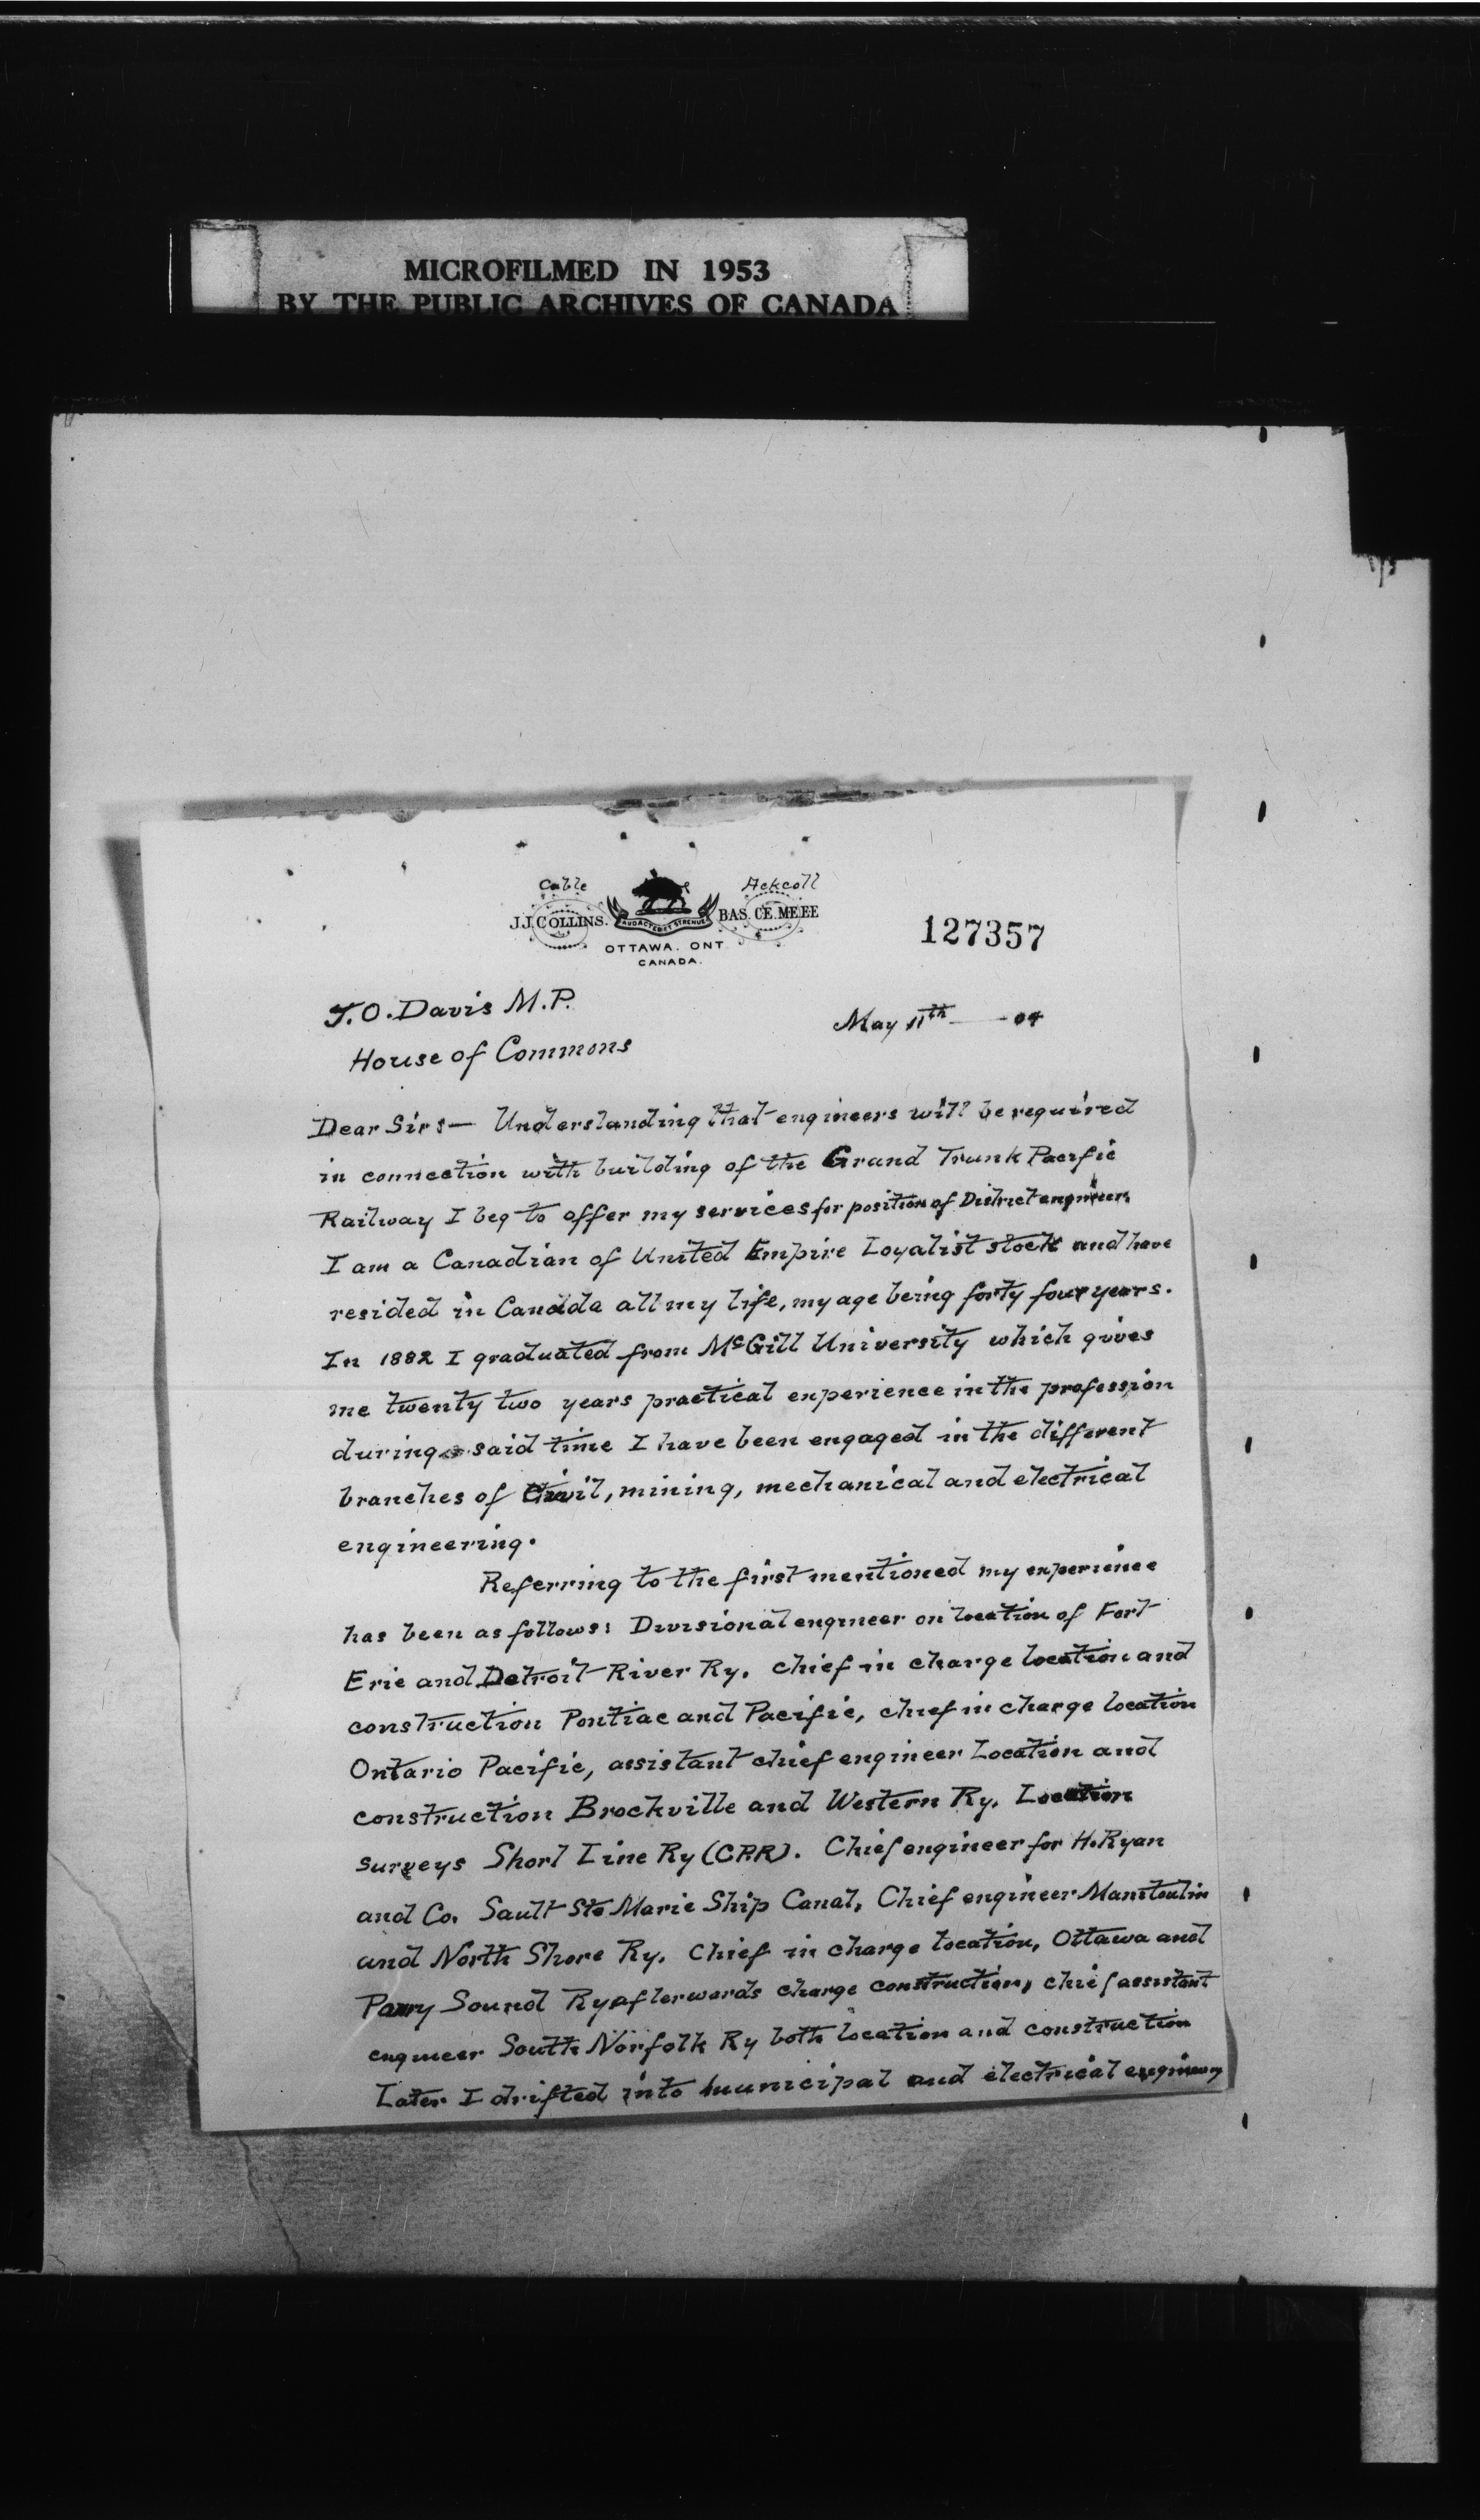 MICROFILMED IN 1953
BY THE PUBLIC ARCHIVES OF CANADA
Cable Ackcoll
J.J. COLLINS. AUDACTER ET STRENUE BAS. CE. ME. EE
OTTAWA. ONT
CANADA.
127357
T.O. Davis M.P.
May 11th — 04
House of Commons
Dear Sirs— Understanding that engineers will be required
in connection with building of the Grand Trunk Pacific
Railway I beg to offer my services for position of District engineer.
I am a Canadian of United Empire Loyalist stock and have
resided in Canada all my life, my age being forty four years.
In 1882 I graduated from McGill University which gives
me twenty two years practical experience in the profession
during said time I have been engaged in the different
branches of Civil, mining, mechanical and electrical
engineering.
Referring to the first mentioned my experience
has been as follows: Divisional engineer on location of Fort
Erie and Detroit River Ry. chief in charge location and
construction Pontiac and Pacific, chief in charge location
Ontario Pacific, assistant chief engineer Location and
construction Brockville and Western Ry. Location
surveys Short Line Ry (C.P.R). Chief engineer for H. Ryan
and Co. Sault Ste Marie Ship Canal, Chief engineer Manitoulin
and North Shore Ry. Chief in charge location, Ottawa and
Parry Sound Ry afterwards charge construction, chief assistant
engineer South Norfolk Ry both location and construction
Later I drifted into municipal and electrical engineering